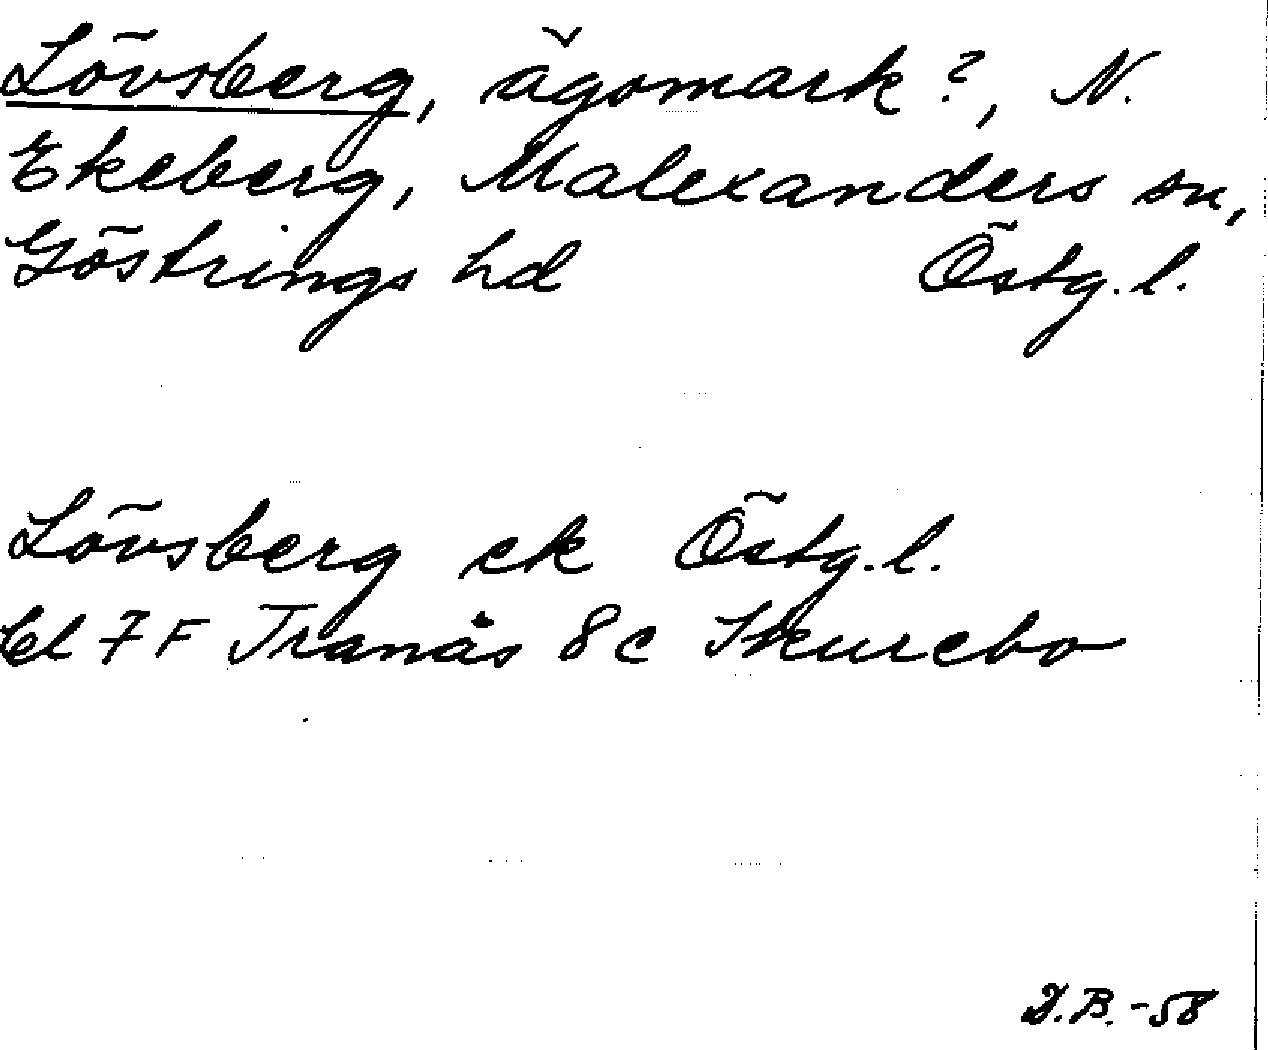 Lövsberg, ägomark?, N.
Ekeberg, Malexanders sn,
Göstrings hd Östg.l.
Lövsberg ek Östg.l.
bl 7 F Tranås 8 c Skurebo
D.B. -58